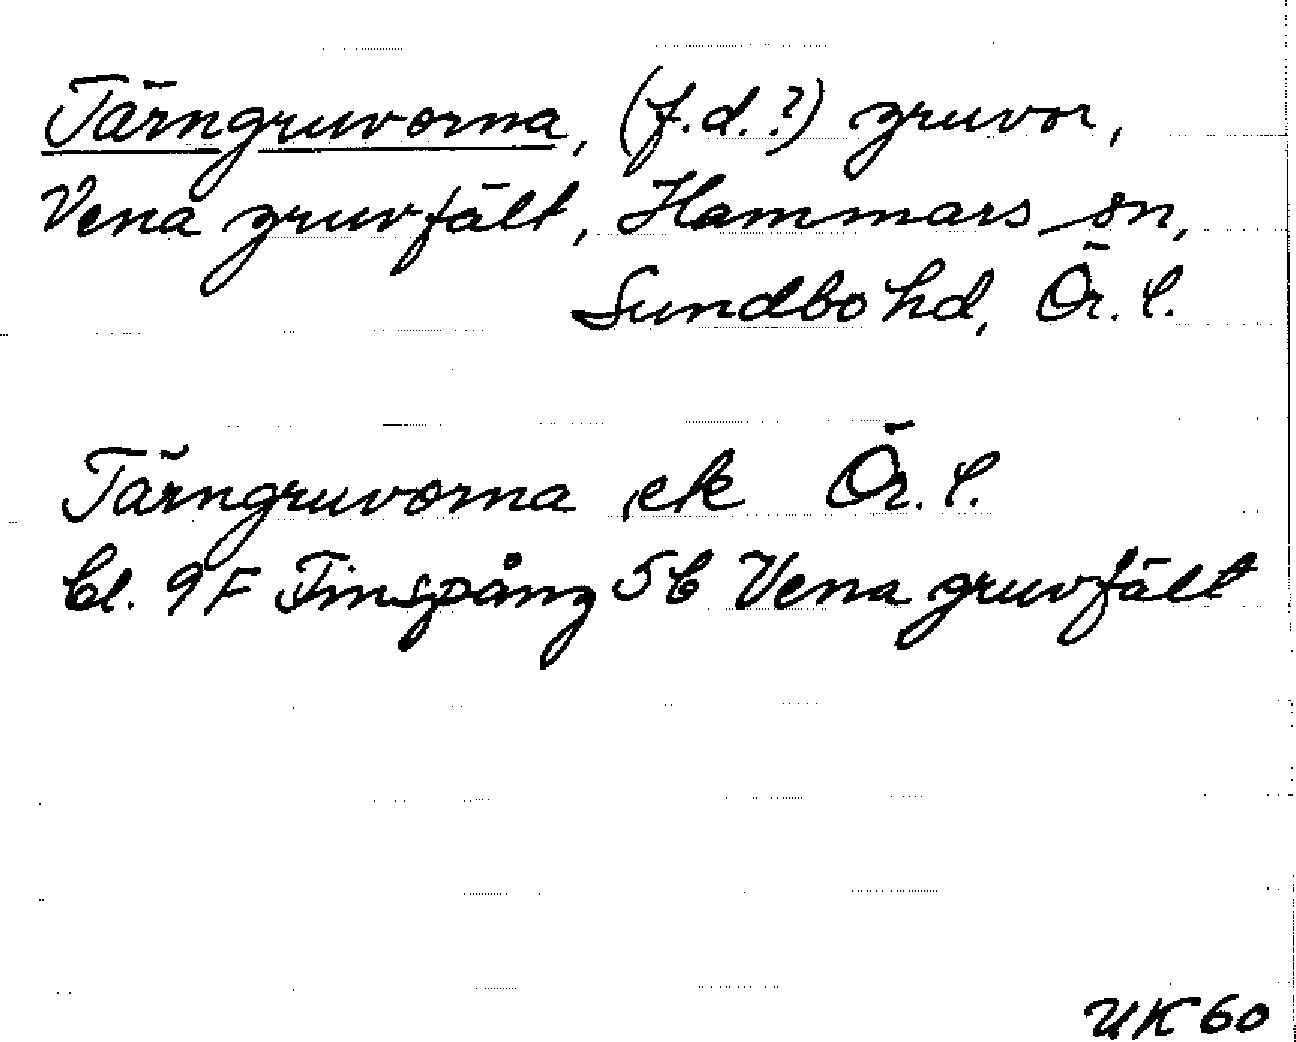 Tärngruvorna, (f.d.?) gruvor,
Vena gruvfält, Hammars sn,
Sundbo hd, Ör. l.
Tärngruvorna ek Ör. l.
bl. 9F Finspång 5b Vena gruvfält
UK 60